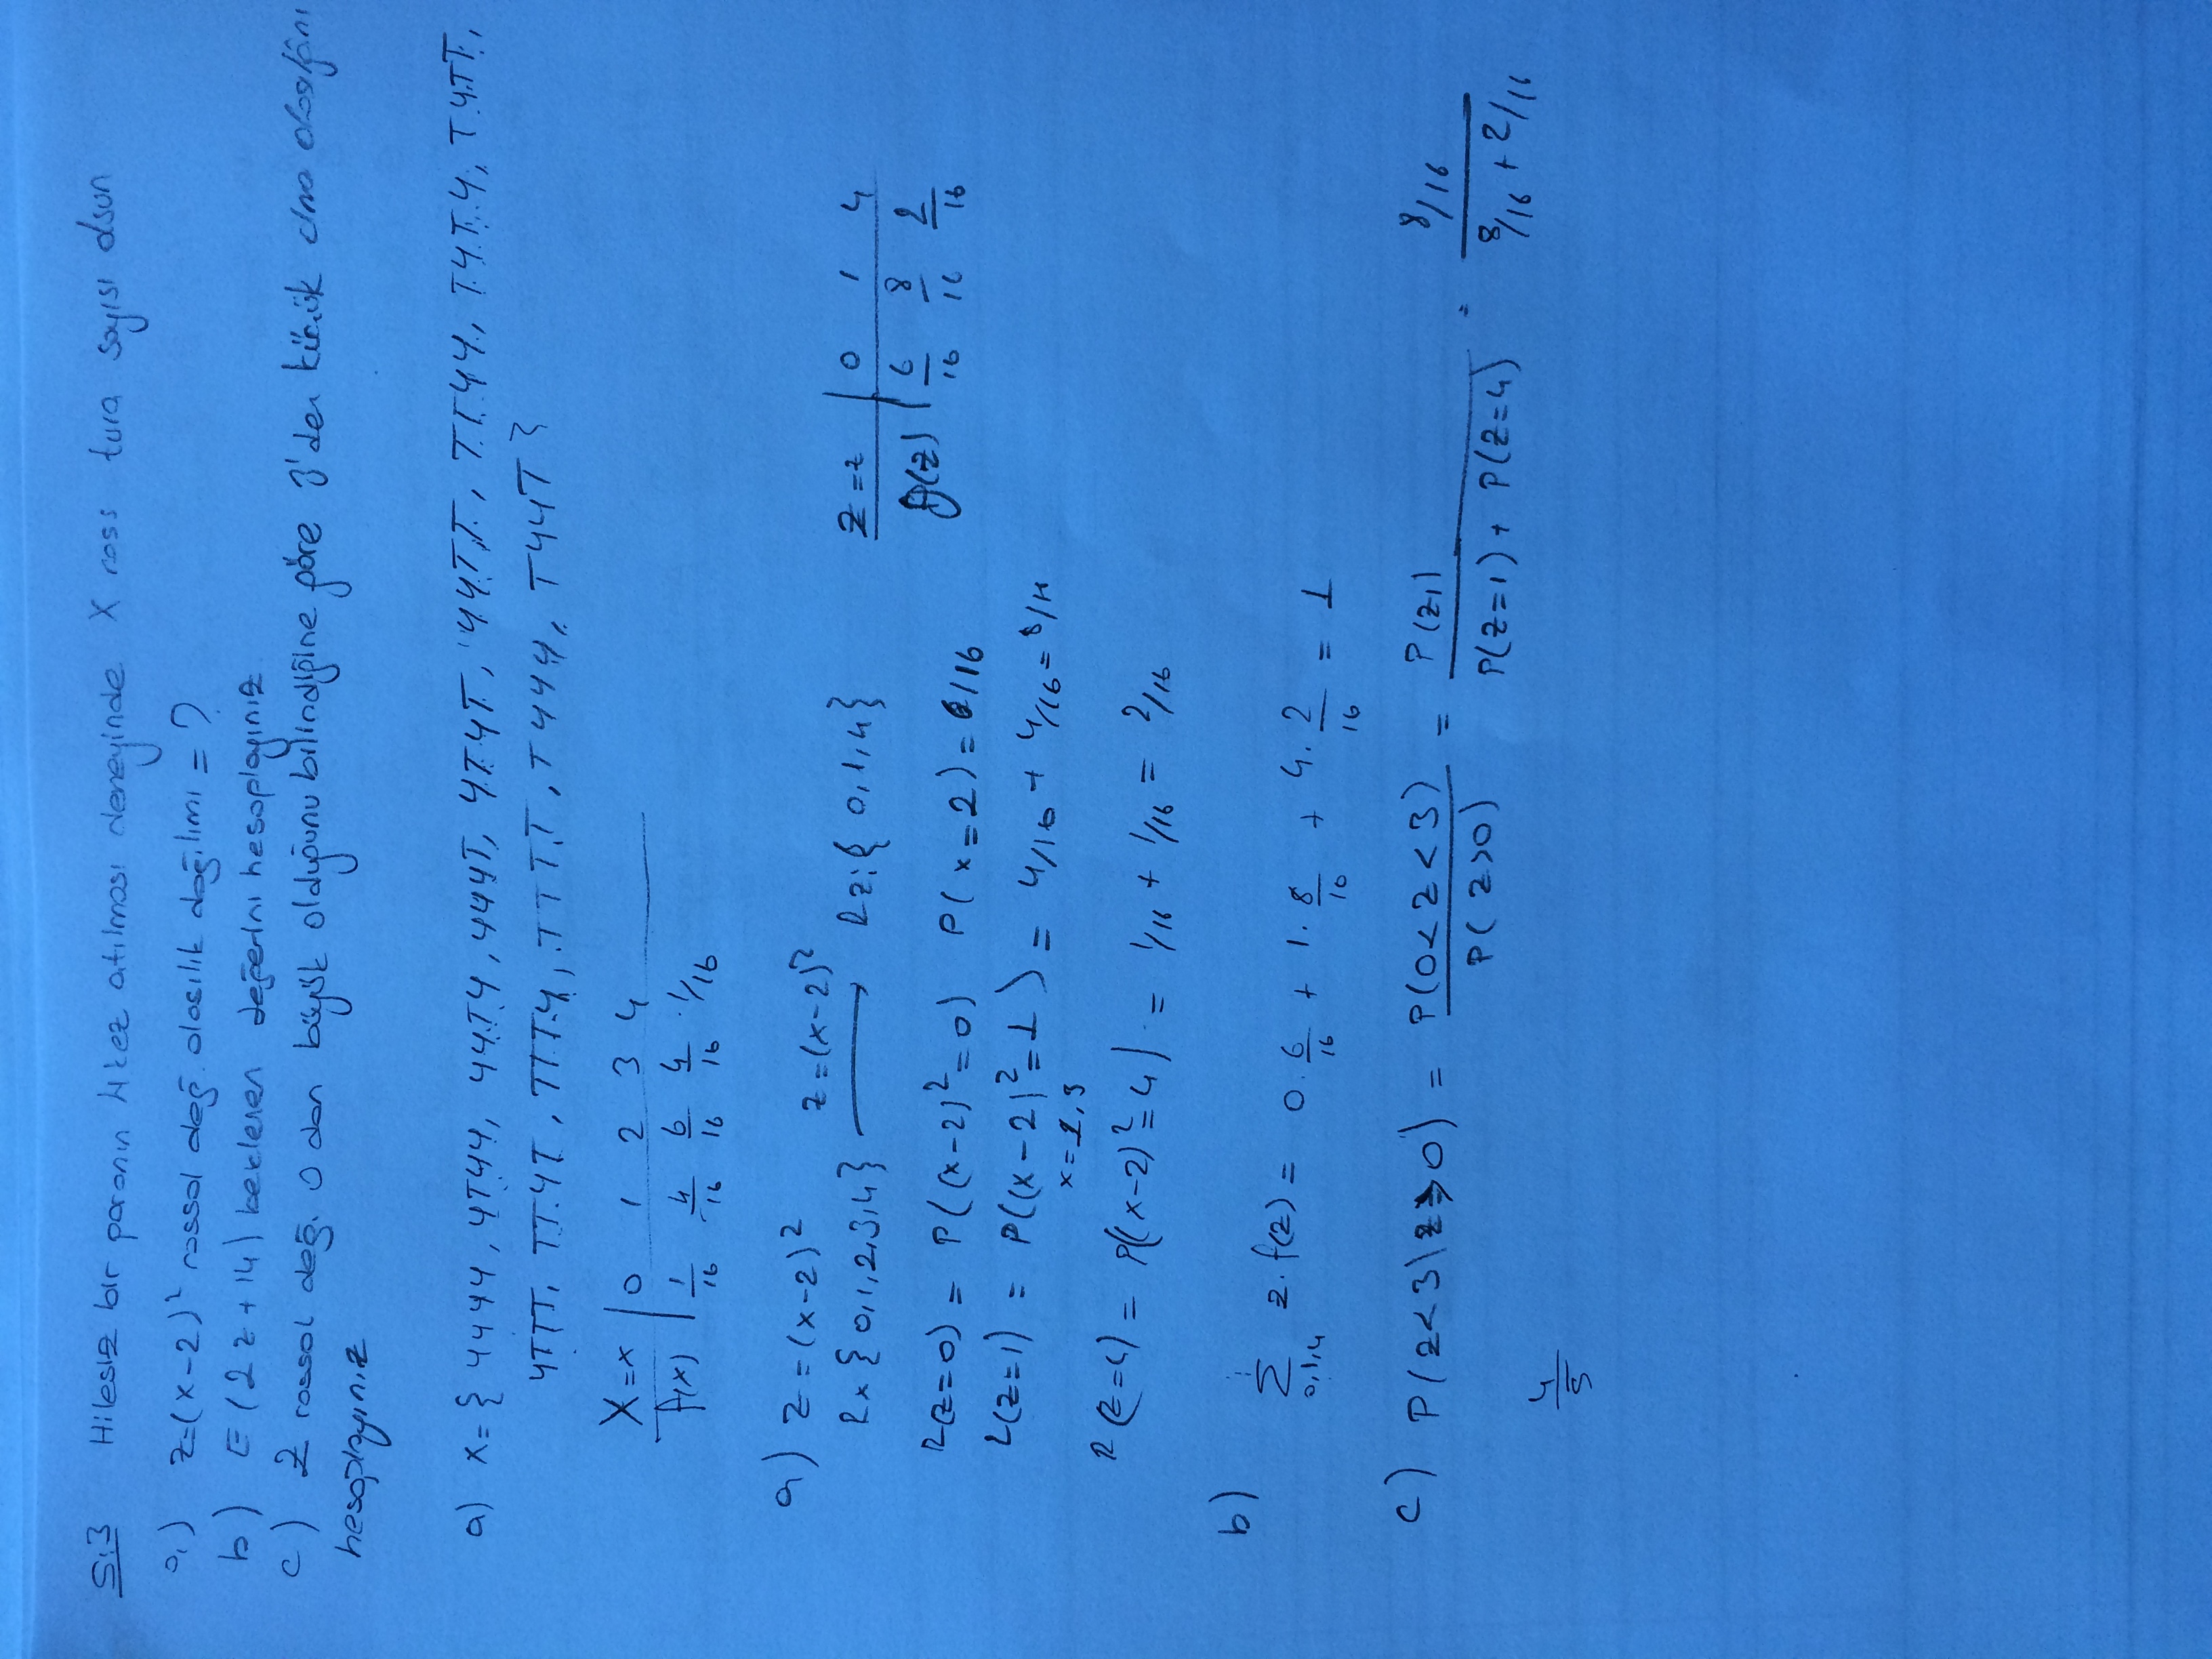 S:3 Hilesiz bir paranın 4 kez atılması deneyinde X rass tura sayısı olsun
a.) z=(x-2)² rassal değ. olasılık dağılımı = ?
b) E(2z+14) beklenen değerini hesaplayınız
c) Z rassal değ. 0 dan büyük olduğunu bilindiğine göre 3'den küçük olma olasılığını
hesaplayınız
a) x= { YYYY, YTYY, YYTY, YYYT, YTYT, YYTT, TTYY, TYTY, TYTT,
YTTT, TTYT, TTTY, TTTT, TYYY, TYYT }
X=x | 0 1 2 3 4
f(x) | 1/16 4/16 6/16 4/16 1/16
a) z=(x-2)²
z=(x-2)²
Rx {0,1,2,3,4} → Rz:{0,1,4}
Z=z | 0 1 4
g(z) | 6/16 8/16 2/16
R(z=0) = P((x-2)²=0) P(x=2)=6/16
R(z=1) = P((x-2)²=1) = 4/16 + 4/16 = 8/16
x=1,3
R(z=4) = P((x-2)²=4) = 1/16 + 1/16 = 2/16
b)
Σ z.f(z) = 0.6/16 + 1.8/16 + 4.2/16 = 1
0,1,4
c) P(z<3\z>0) = P(0<z<3)/P(z>0) = P(z,1)/P(z=1)+P(z=4) = 8/16 / 8/16+2/16
4/5